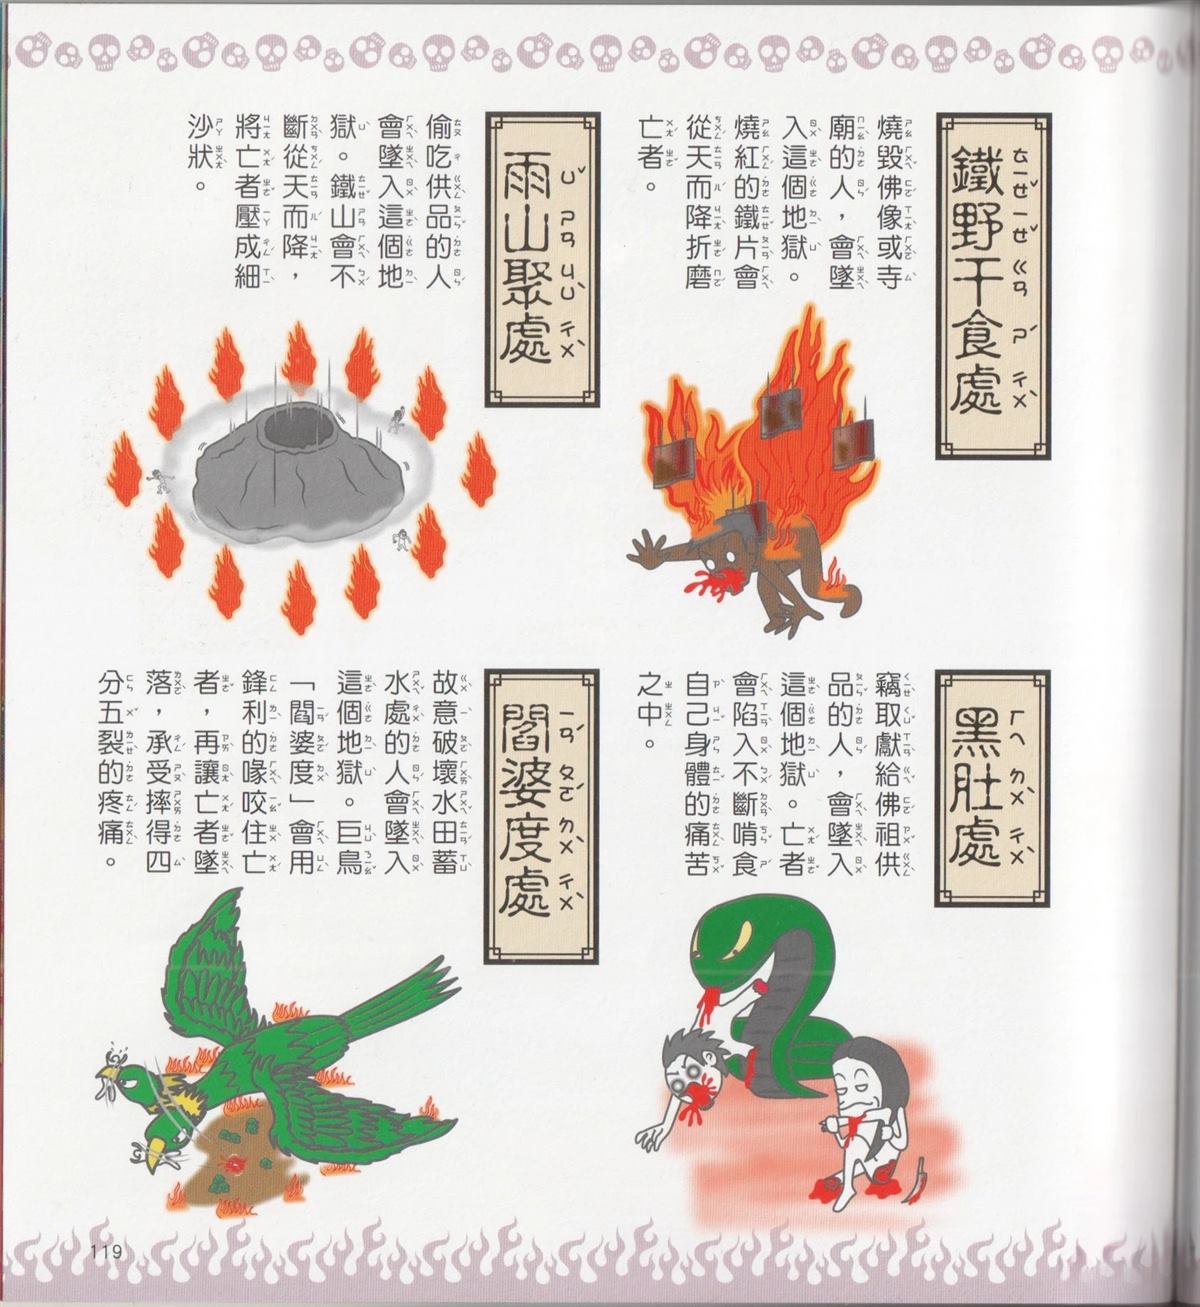 鐵野干食處
燒毀佛像或寺
廟的人，會墜
入這個地獄。
燒紅的鐵片會
從天而降折磨
亡者。
雨山聚處
偷吃供品的人
會墜入這個地
獄。鐵山會不
斷從天而降，
將亡者壓成細
沙狀。
黑肚處
竊取獻給佛祖供
品的人，會墜入
這個地獄。亡者
會陷入不斷啃食
自己身體的痛苦
之中。
閻婆度處
故意破壞水田蓄
水處的人會墜入
這個地獄。巨鳥
「閻婆度」會用
鋒利的喙咬住亡
者，再讓亡者墜
落，承受摔得四
分五裂的疼痛。
119